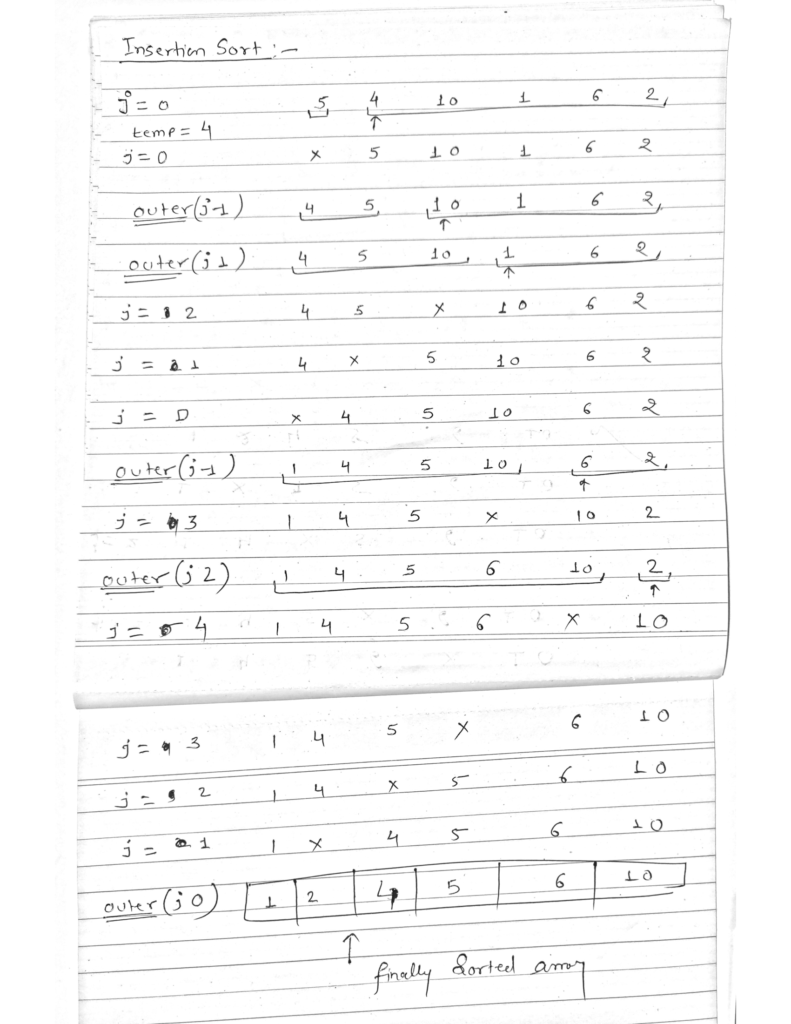 Insertion Sort :-
j = 0 5 4 10 1 6 2
temp = 4
j = 0 x 5 10 1 6 2
outer (j-1) 4 5 10 1 6 2
outer (j 1) 4 5 10 1 6 2
j = 2 4 5 x 10 6 2
j = 1 4 x 5 10 6 2
j = 0 x 4 5 10 6 2
outer (j-1) 1 4 5 10 6 2
j = 3 1 4 5 x 10 2
outer (j 2) 1 4 5 6 10 2
j = 4 1 4 5 6 x 10
j = 3 1 4 5 x 6 10
j = 2 1 4 x 5 6 10
j = 1 1 x 4 5 6 10
outer (j 0) 1 2 4 5 6 10
finally Sorted array